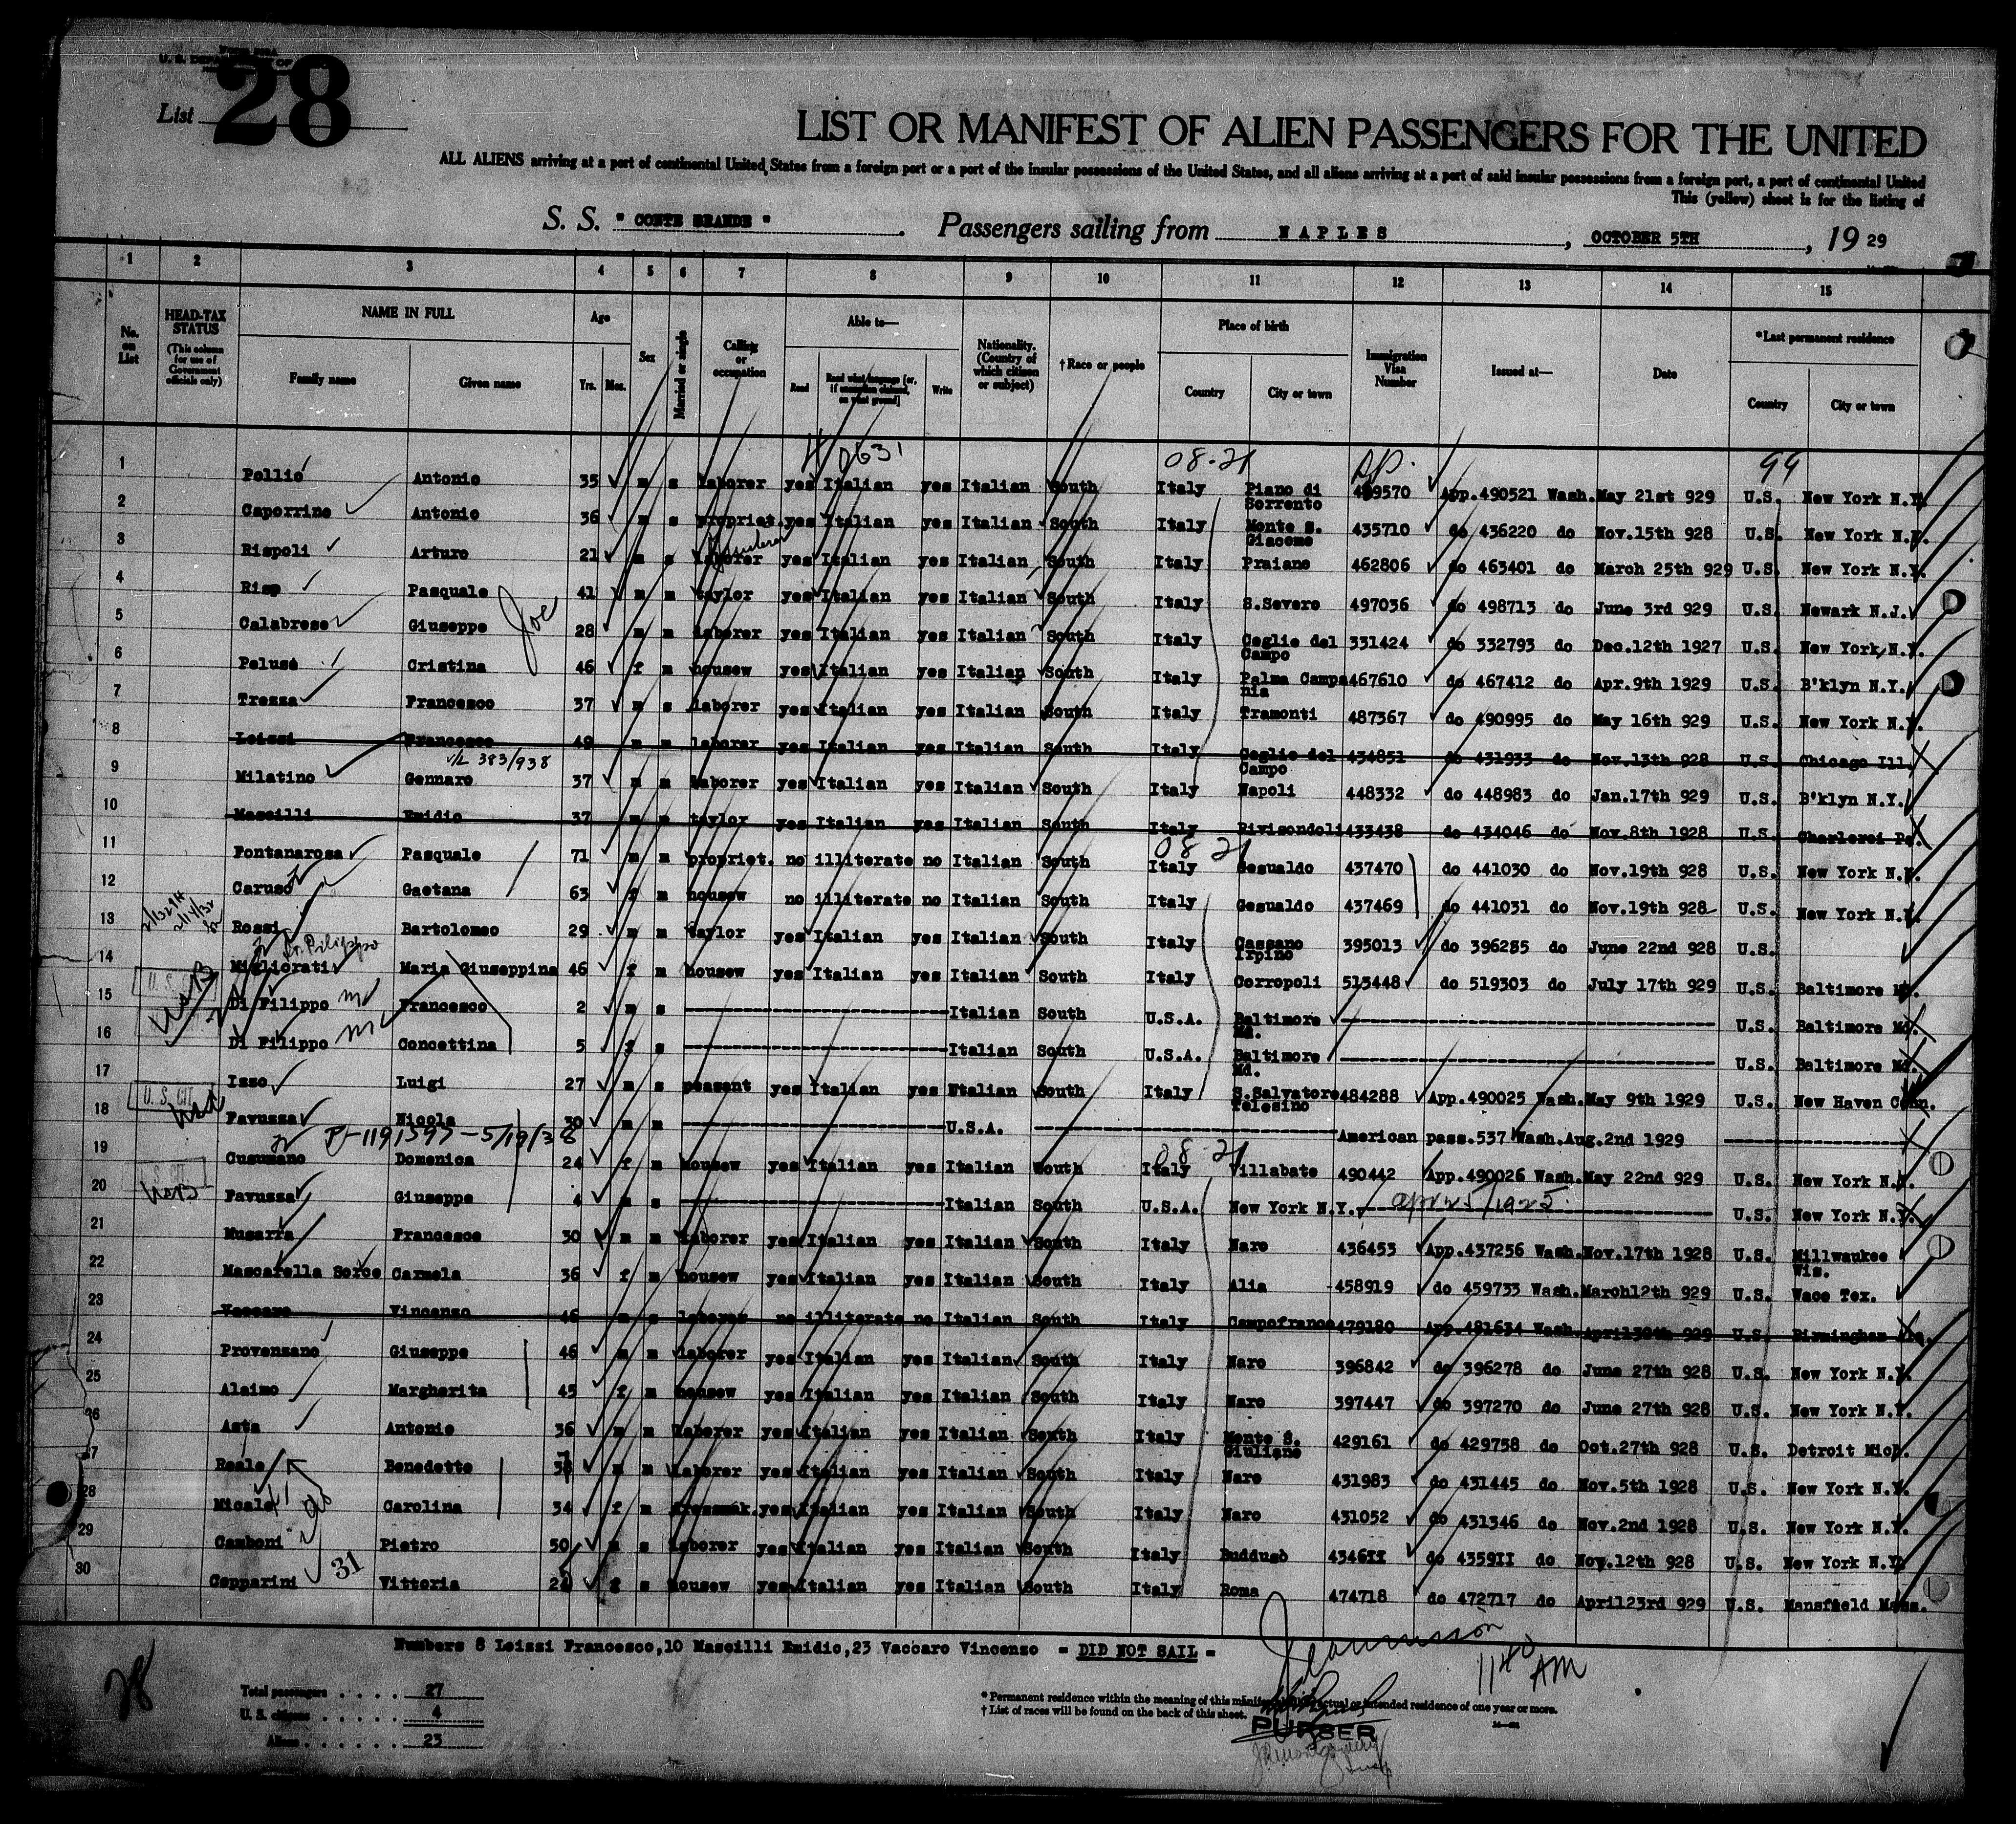 List 28
LIST OR MANIFEST OF ALIEN PASSENGERS FOR THE UNITED
ALL ALIENS arriving at a port of continental United States from a foreign port or a port of the insular possessions of the United States, and all aliens arriving at a port of said insular possessions from a foreign port, a port of continental United
This (yellow) sheet is for the listing of
S. S. " CONTE GRANDE " . Passengers sailing from NAPLES , OCTOBER 5TH , 19 29
1 2 3 4 5 6 7 8 9 10 11 12 13 14 15
No. on List
HEAD-TAX STATUS (This column for use of Government officials only)
NAME IN FULL
Family name Given name
Age
Yrs. Mos.
Sex
Married or single
Calling or occupation
Able to—
Read Read what language [or, if exemption claimed, on what ground] Write
Nationality. (Country of which citizen or subject)
†Race or people
Place of birth
Country City or town
Immigration Visa Number
Issued at—
Date
*Last permanent residence
Country City or town
0631 08-21 99
1 Pollio Antonio 35 m s laborer yes Italian yes Italian South Italy Piano di Sorrento 489570 App.490521 Wash. May 21st 929 U.S. New York N.Y.
2 Caporrino Antonio 36 m s propriet. yes Italian yes Italian South Italy Monte S. Giacomo 435710 do 436220 do Nov.15th 928 U.S. New York N.Y.
3 Rispoli Arturo 21 m s laborer yes Italian yes Italian South Italy Praiano 462806 do 463401 do March 25th 929 U.S. New York N.Y.
4 Risp Pasquale 41 m m taylor yes Italian yes Italian South Italy S.Severo 497036 do 498713 do June 3rd 929 U.S. Newark N.J.
5 Calabrese Giuseppe Joe 28 m m laborer yes Italian yes Italian South Italy Ceglie del Campo 331424 do 332793 do Dec.12th 1927 U.S. New York N.Y.
6 Peluse Cristina 46 f m housew yes Italian yes Italian South Italy Palma Campania 467610 do 467412 do Apr.9th 1929 U.S. B'klyn N.Y.
7 Trezza Francesco 37 m s laborer yes Italian yes Italian South Italy Tramonti 487367 do 490995 do May 16th 929 U.S. New York N.Y.
8 Leizzi Francesco 49 m m laborer yes Italian yes Italian South Italy Ceglie del Campo 434851 do 431933 do Nov.13th 928 U.S. Chicago Ill.
383/938
9 Milatino Gennaro 37 m m laborer yes Italian yes Italian South Italy Napoli 448332 do 448983 do Jan.17th 929 U.S. B'klyn N.Y.
10 Mascilli Emidio 37 m m taylor yes Italian yes Italian South Italy Rivisondoli 433438 do 434046 do Nov.8th 1928 U.S. Charleroi Pa.
08 21
11 Fontanarosa Pasquale 71 m m propriet. no illiterate no Italian South Italy Gesualdo 437470 do 441030 do Nov.19th 928 U.S. New York N.Y.
12 Caruso Gaetana 63 f m housew no illiterate no Italian South Italy Gesualdo 437469 do 441031 do Nov.19th 928 U.S. New York N.Y.
13 Rossi Bartolomeo 29 m m taylor yes Italian yes Italian South Italy Cassano Irpino 395013 do 396255 do June 22nd 928 U.S.
Di Filippo
14 Migliorati Maria Giuseppina 46 f m housew yes Italian yes Italian South Italy Corropoli 515448 do 519303 do July 17th 929 U.S. Baltimore Md.
15 Di Filippo Francesco 2 m s Italian South U.S.A. Baltimore Md. U.S. Baltimore Md.
16 Di Filippo Concettina 5 f s Italian South U.S.A. Baltimore Md. U.S. Baltimore Md.
17 Izzo Luigi 27 m s peasant yes Italian yes Ntalian South Italy S.Salvatore Telesino 484288 App.490025 Wash. May 9th 1929 U.S. New Haven Conn.
U. S. CIT
18 Favuzza Nicola 30 m m U.S.A. American pass.537 Wash. Aug.2nd 1929
08 21
19 Cusumano Domenica 24 f m housew yes Italian yes Italian South Italy Villabate 490442 App.490026 Wash. May 22nd 929 U.S. New York N.Y.
20 Favuzza Giuseppe 4 m s Italian South U.S.A. New York N.Y. Apr 25/1925 U.S. New York N.Y.
21 Musarra Francesco 30 m m laborer yes Italian yes Italian South Italy Naro 436453 App.437256 Wash. Nov.17th 1928 U.S. Millwaukee Wis.
22 Mascarella Sorce Carmela 36 f m housew yes Italian yes Italian South Italy Alia 458919 do 459733 Wash. March12th 929 U.S. Waco Tex.
23 Vaccaro Vincenzo 46 m s laborer no illiterate no Italian South Italy Campofranco 479180 App.481634 Wash. April30th 929 U.S. Birmingham Ala.
24 Provenzano Giuseppe 46 m m laborer yes Italian yes Italian South Italy Naro 396842 do 396278 do June 27th 928 U.S. New York N.Y.
25 Alaimo Margherita 45 f m housew yes Italian yes Italian South Italy Naro 397447 do 397270 do June 27th 928 U.S. New York N.Y.
26 Asta Antonio 36 m m laborer yes Italian yes Italian South Italy Monte S. Giuliano 429161 do 429758 do Oct.27th 928 U.S. Detroit Mich.
27 Reale Benedetto 38 m m laborer yes Italian yes Italian South Italy Naro 431983 do 431445 do Nov.5th 1928 U.S. New York N.Y.
28 Micale Carolina 34 f m dressmak. yes Italian yes Italian South Italy Naro 431052 do 431346 do Nov.2nd 1928 U.S. New York N.Y.
29 Camboni Pietro 50 m s laborer yes Italian yes Italian South Italy Buddusò 4346II do 4359II do Nov.12th 928 U.S. New York N.Y.
30 Cepparini 31 Vittoria 24 f s housew yes Italian yes Italian South Italy Roma 474718 do 472717 do April23rd 929 U.S. Mansfield Mass.
Numbers 8 Leizzi Francesco,10 Mascilli Emidio,23 Vaccaro Vincenzo = DID NOT SAIL =
28
1140 AM
Total passengers . . . . 27
U. S. citizens . . . . . 4
Aliens . . . . . . 23
* Permanent residence within the meaning of this manifest actual or intended residence of one year or more.
† List of races will be found on the back of this sheet.
PURSER